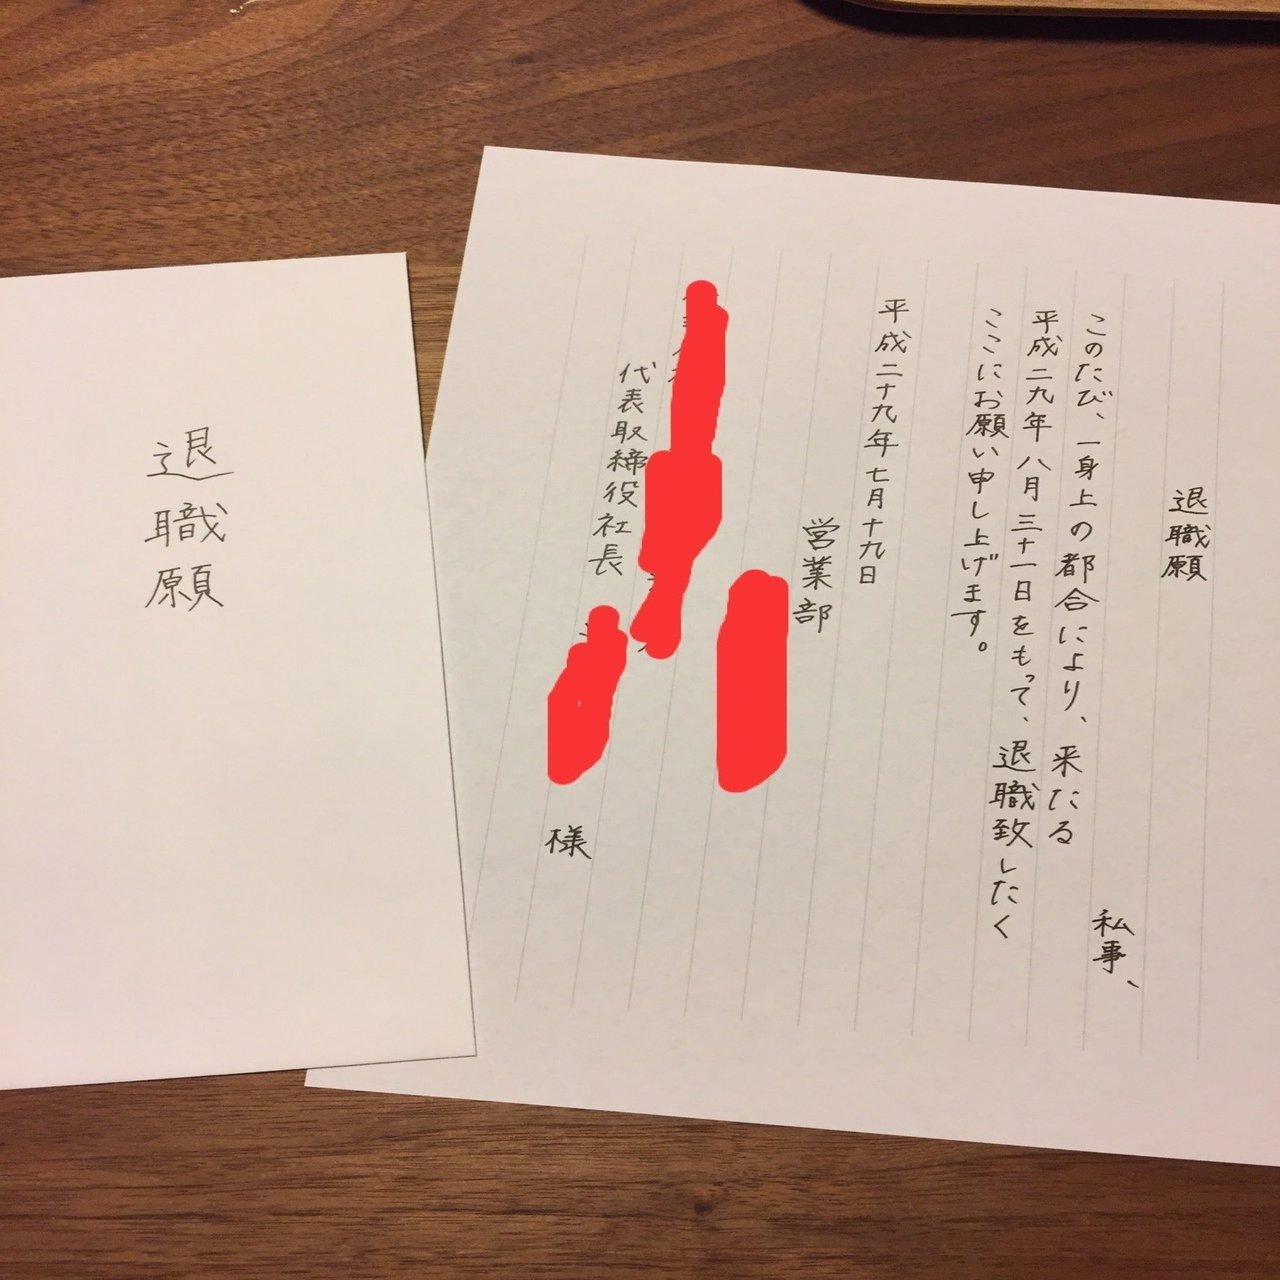 退職願
私事、
このたび、一身上の都合により、来たる
平成二九年八月三十一日をもって、退職致したく
ここにお願い申し上げます。
平成二十九年七月十九日
営業部
代表取締役社長
様
退職願